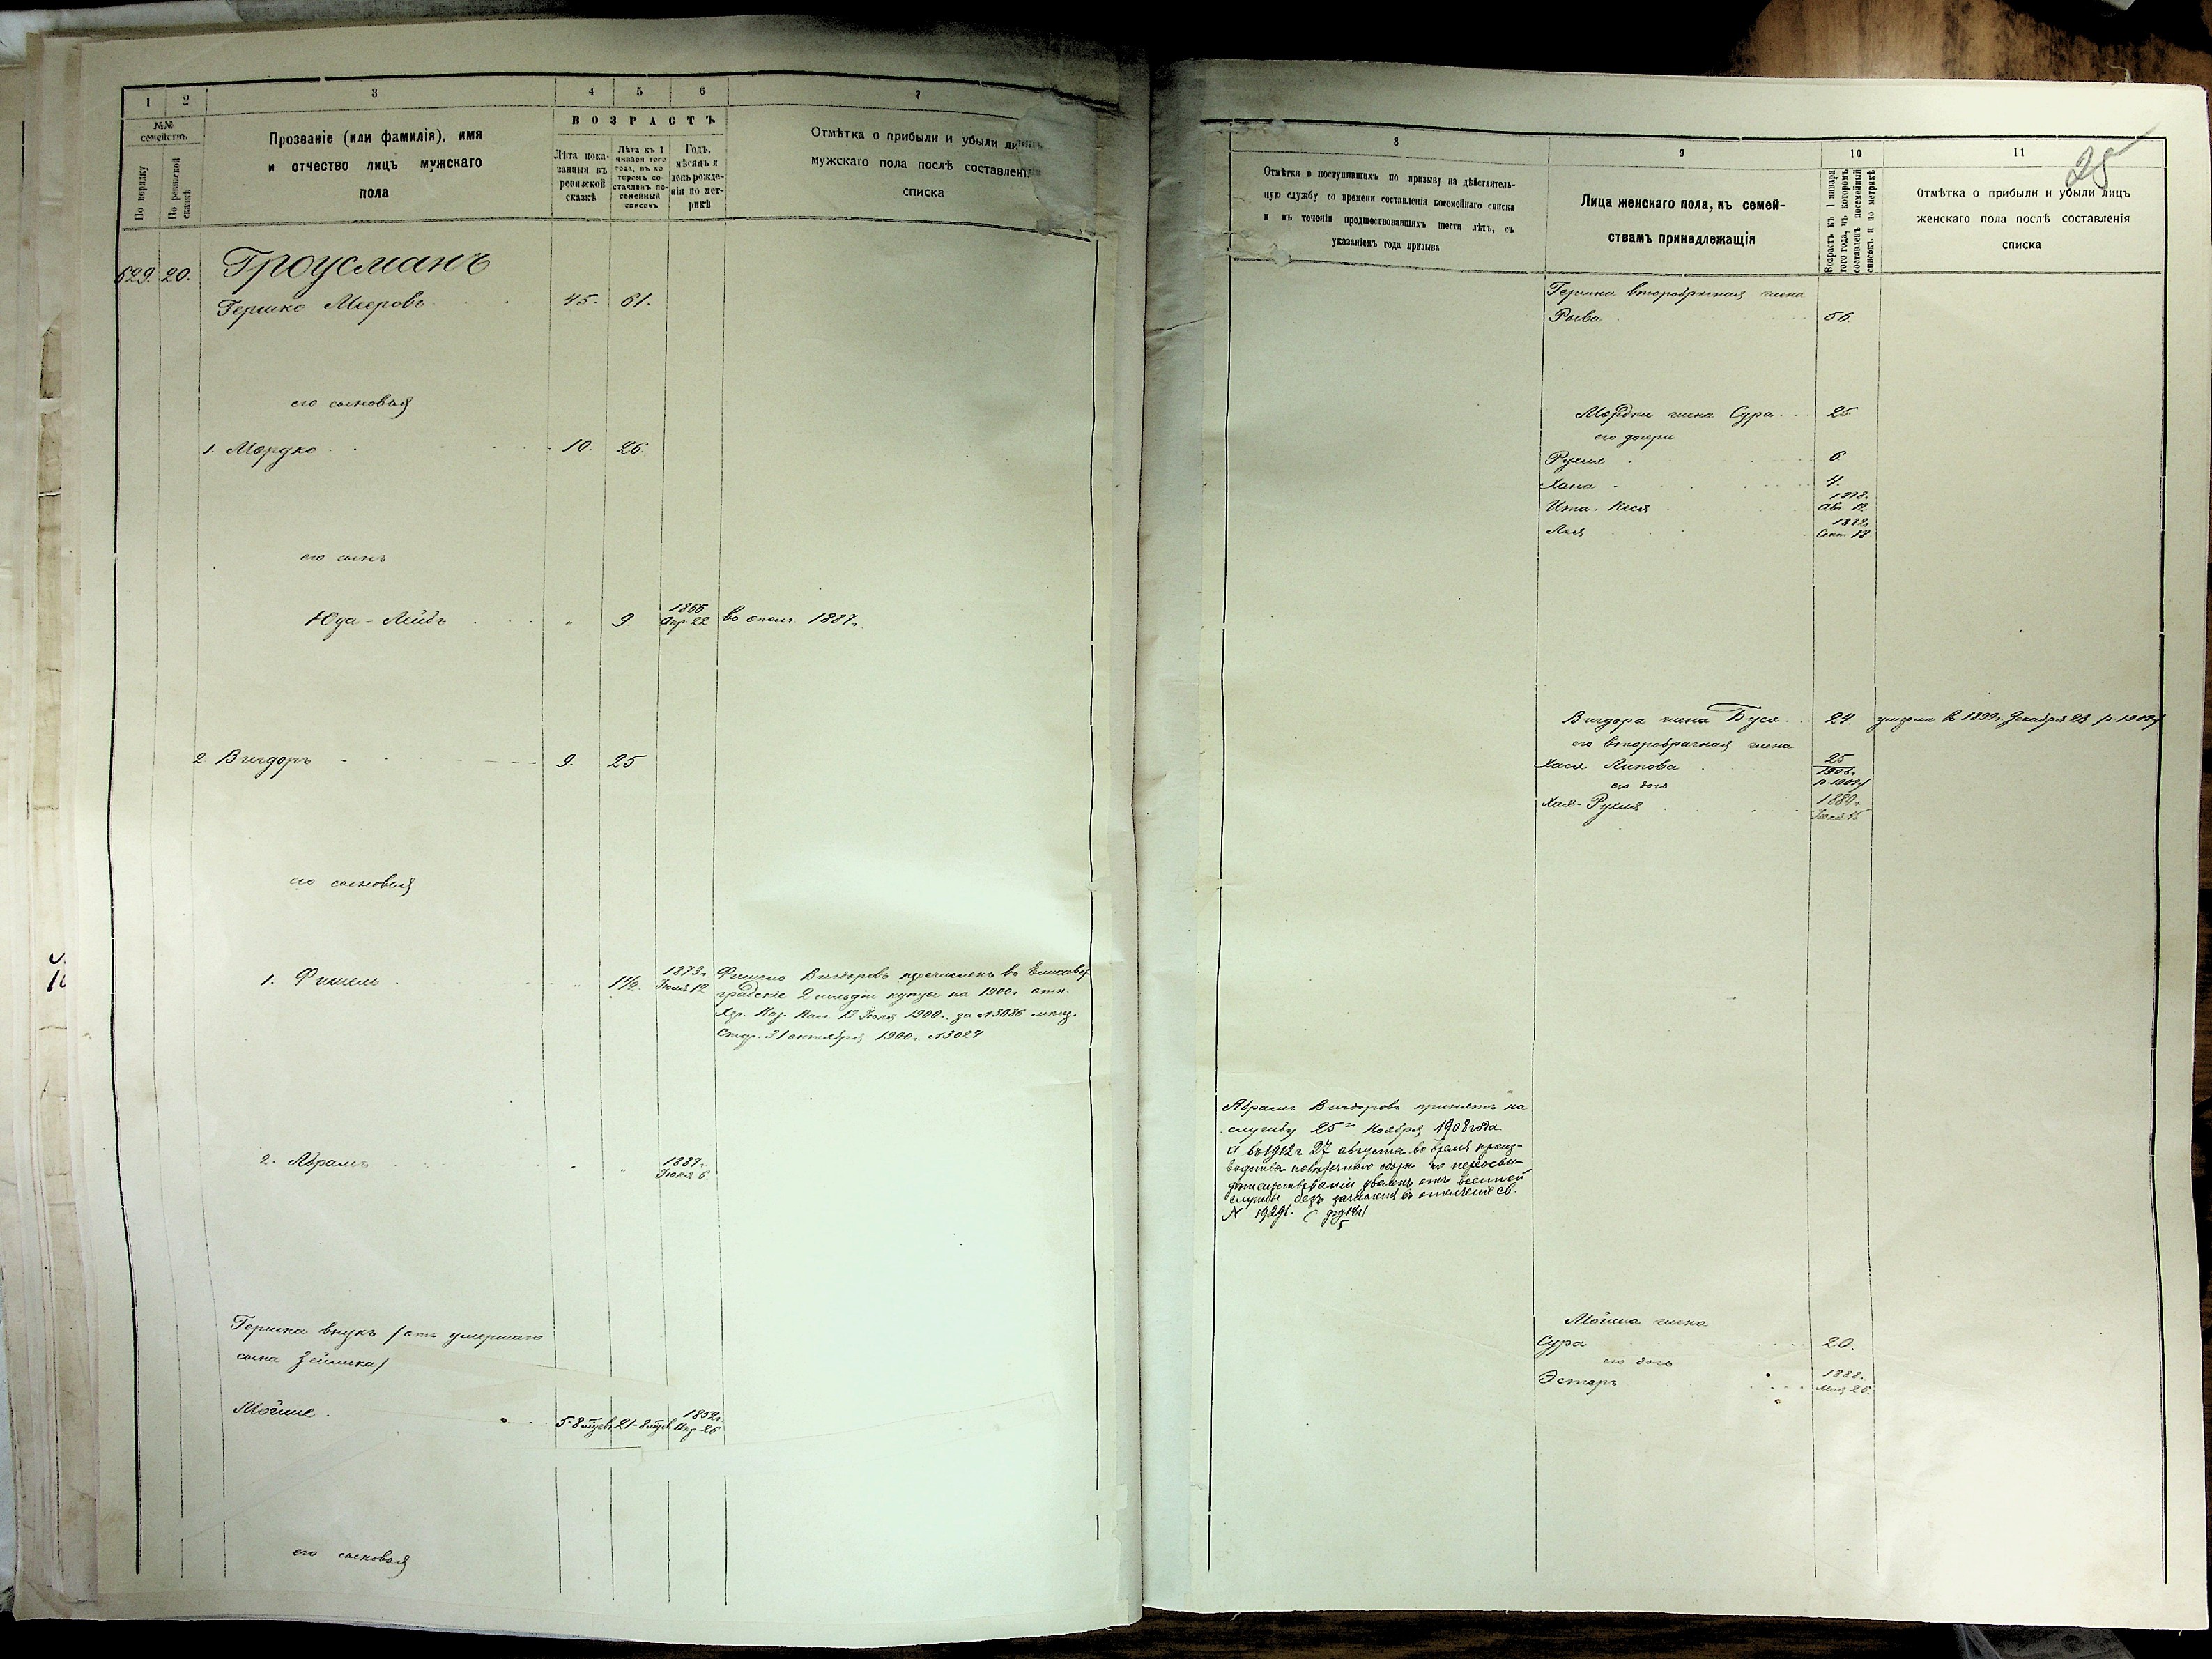 1 2 3 4 5 6 7
№№ семействъ
По порядку
По ревизской сказкѣ
Прозваніе (или фамилія), имя
и отчество лицъ мужскаго
пола
ВОЗРАСТЪ
Лѣта пока-
занныя въ
ревизской
сказкѣ
Лѣта къ 1
января того
года, въ ко-
торомъ со-
ставленъ по-
семейный
списокъ
Годъ,
мѣсяцъ и
день рожде-
нія по мет-
рикѣ
Отмѣтка о прибыли и убыли лицъ
мужскаго пола послѣ составленія
списка
629. 20. Гроусманъ
Гершко Мееровъ 45. 61.
его сыновья
1. Мордко 10. 26.
его сынъ
Юда-Лейбъ " 9. 1866 Апр. 22 во опол. 1887г.
2 Вигдоръ 9. 25
его сыновья
1. Фишель " 1½. 1873г. Іюля 12 Фишель Вигдоровъ перечисленъ въ Елисавет
градскіе 2 гильдіи купцы на 1900г. отн.
Хер. Каз. Пал. 13 Іюня 1900г. за №3086
31 октября 1900г. №3024
2. Абрамъ " " 1887г. Іюня 6.
Гершка внукъ /отъ умершаго
сына Зейлика/
Мойше 5-8 мѣс. 21-8 мѣс. 1852г. Апр. 26
его сыновья
8 9 10 11
28
Отмѣтка о поступившихъ по призыву на дѣйствитель-
ную службу со времени составленія посемейнаго списка
и въ теченіи предшествовавшихъ шести лѣтъ, съ
указаніемъ года призыва
Лица женскаго пола, къ семей-
ствамъ принадлежащія
Возрастъ къ 1 января
того года, въ которомъ
составленъ посемейный
списокъ и по метрикѣ
Отмѣтка о прибыли и убыли лицъ
женскаго пола послѣ составленія
списка
Гершка второбрачная жена
Рыва 56.
Мордки жена Сура 25.
его дочери
Рухля 6
Хана 4.
Ита-Неся 1878г. Авг. 12
Лея 1882г. Сент. 18
Вигдора жена Буся 24. умерла въ 1899г. Декабря 23
его второбрачная жена
Хася Липова 25
его дочь
Хая-Рухля 1880г. 15
Абрамъ Вигдоровъ принятъ на
службу 25го Ноября 1908 года
А въ 1912г 27 августа во время произ-
водства повторнаго сбора по переосви-
дѣтельствованіи уволенъ отъ военной
службы безъ зачисленія въ ополченіе св.
№ 19291.
Мойша жена
Сура 20.
его дочь
Эстеръ 1888г. Мая 26.